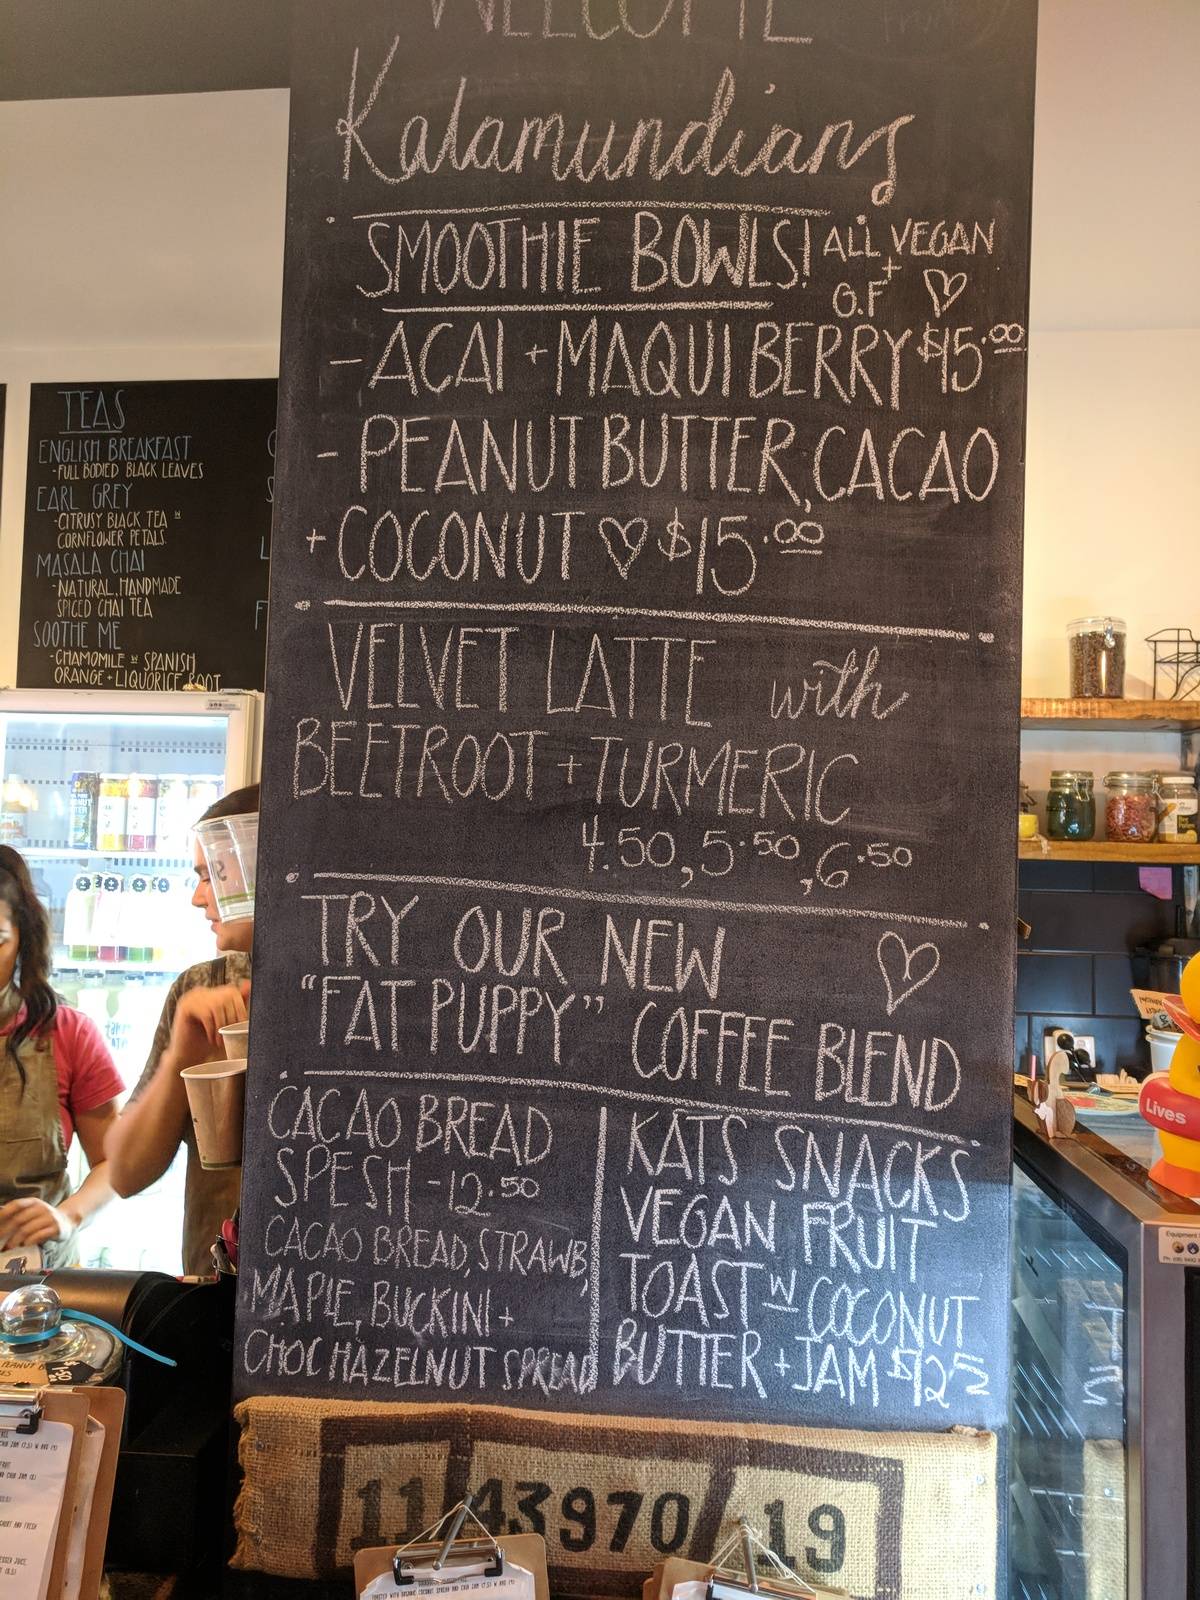 WELCOME
Kalamundians
SMOOTHIE BOWLS! ALL VEGAN
+
G.F
- ACAI + MAQUI BERRY $15.00
- PEANUT BUTTER, CACAO
+ COCONUT ♡ $15.00
VELVET LATTE with
BEETROOT + TURMERIC
4.50, 5.50, 6.50
TRY OUR NEW
"FAT PUPPY" COFFEE BLEND
CACAO BREAD
SPESH - 12.50
CACAO BREAD, STRAWB,
MAPLE, BUCKINI +
CHOC HAZELNUT SPREAD
KATS SNACKS
VEGAN FRUIT
TOAST W COCONUT
BUTTER + JAM
TEAS
ENGLISH BREAKFAST
- FULL BODIED BLACK LEAVES
EARL GREY
- CITRUSY BLACK TEA W
CORNFLOWER PETALS
MASALA CHAI
- NATURAL, HANDMADE
SPICED CHAI TEA
SOOTHE ME
- CHAMOMILE W SPANISH
ORANGE + LIQUORICE ROOT
Lives
11 43970/19